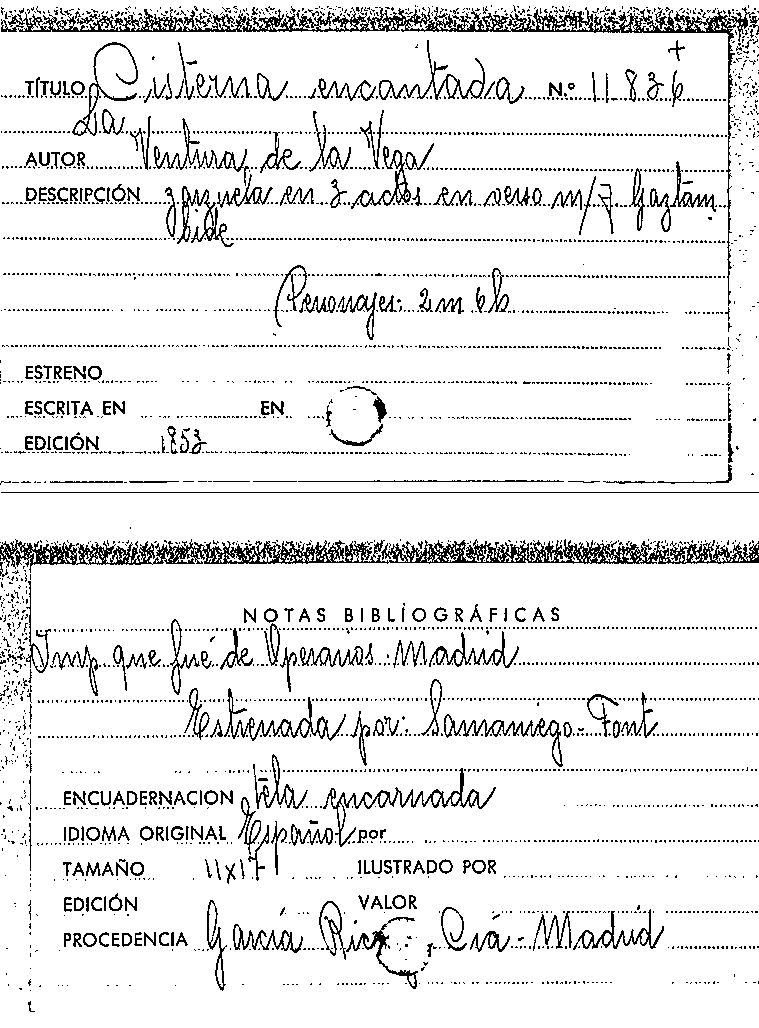 +
TÍTULO Cisterna encantada N.º 11836
La
AUTOR Ventura de la Vega
DESCRIPCIÓN zarzuela en 3 actos en verso m/ J. Gaztam
bide
Personajes: 2 m 6 h
ESTRENO
ESCRITA EN EN
EDICIÓN 1853
NOTAS BIBLIOGRÁFICAS
Imp que fué de Operarios. Madrid
Estrenada por: Samaniego - Font
ENCUADERNACION tela encarnada
IDIOMA ORIGINAL Español por
TAMAÑO 11x17 ILUSTRADO POR
EDICIÓN VALOR
PROCEDENCIA García Rico Ciá - Madrid